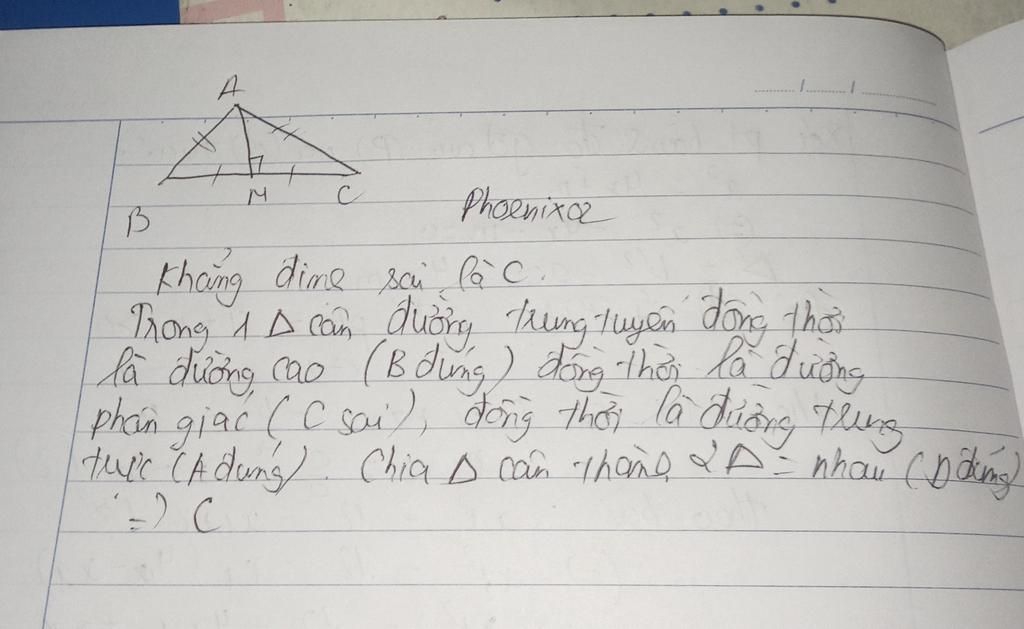 A
B
M
C
Phoenixoz
Khẳng định sai là C.
Trong 1 Δ cân đường trung tuyến đồng thời
là đường cao (B đúng) đồng thời là đường
phân giác (C sai), đồng thời là đường trung
trực (A đúng). Chia Δ cân thành 2 Δ = nhau (D đúng)
=> C